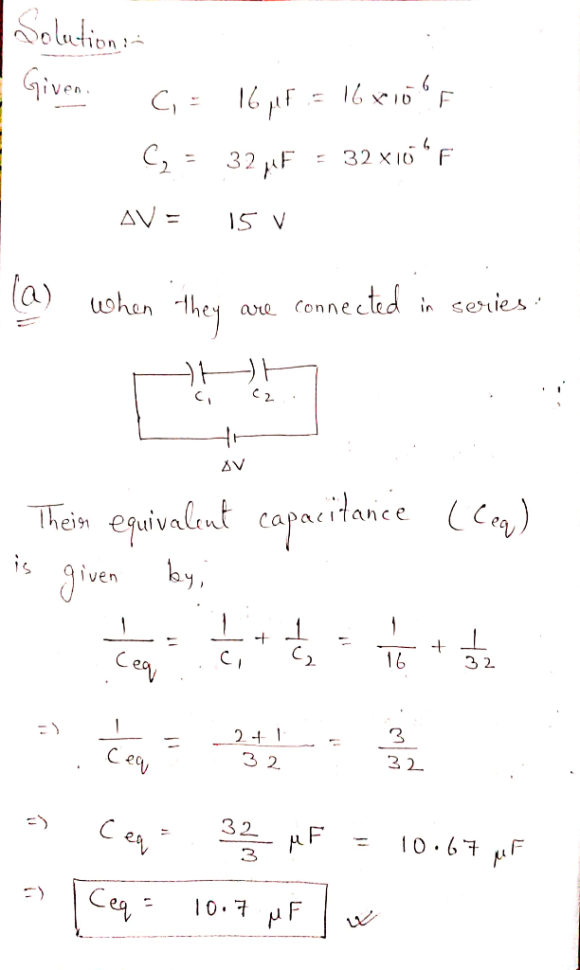 Solution:-
Given.
C₁ = 16 μF = 16 × 10⁻⁶ F
C₂ = 32 μF = 32 × 10⁻⁶ F
ΔV = 15 V
(a) when they are connected in series.
C₁ C₂
ΔV
Their equivalent capacitance (Ceq)
is given by,
1/Ceq = 1/C₁ + 1/C₂ = 1/16 + 1/32
=> 1/Ceq = 2+1/32 = 3/32
=> Ceq = 32/3 μF = 10.67 μF
=> Ceq = 10.7 μF